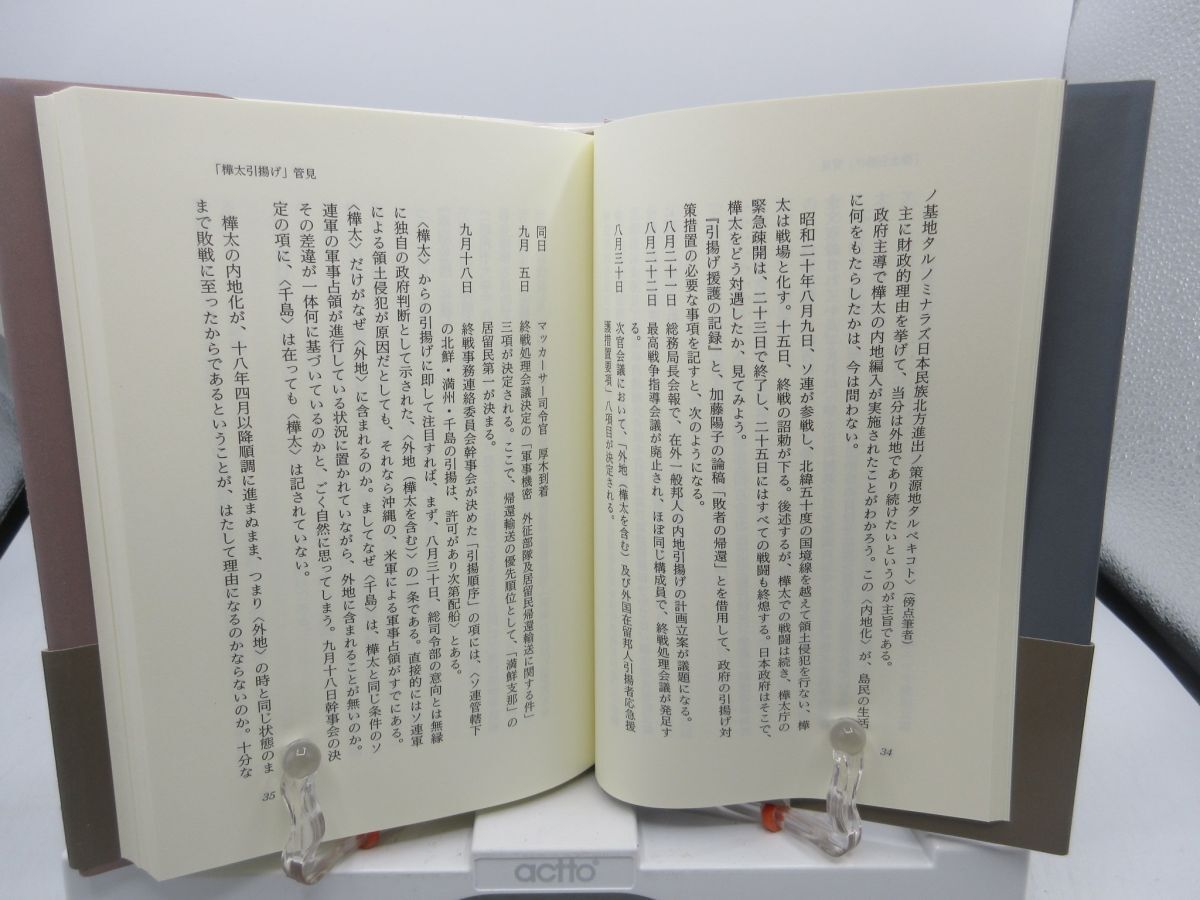 ノ基地タルノミナラズ日本民族北方進出ノ策源地タルベキコト〉（傍点筆者）
主に財政的理由を挙げて、当分は外地であり続けたいというのが主旨である。
政府主導で樺太の内地編入が実施されたことがわかろう。この〈内地化〉が、島民の生活
に何をもたらしたかは、今は問わない。
昭和二十年八月九日、ソ連が参戦し、北緯五十度の国境線を越えて領土侵犯を行ない、樺
太は戦場と化す。十五日、終戦の詔勅が下る。後述するが、樺太での戦闘は続き、樺太庁の
緊急疎開は、二十三日で終了し、二十五日にはすべての戦闘も終熄する。日本政府はそこで、
樺太をどう対遇したか、見てみよう。
『引揚げ援護の記録』と、加藤陽子の論稿「敗者の帰還」とを借用して、政府の引揚げ対
策措置の必要な事項を記すと、次のようになる。
八月二十一日　総務局長会報で、在外一般邦人の内地引揚げの計画立案が議題になる。
八月二十二日　最高戦争指導会議が廃止され、ほぼ同じ構成員で、終戦処理会議が発足す
る。
八月三十日　次官会議において、「外地（樺太を含む）及び外国在留邦人引揚者応急援
護措置要項」八項目が決定される。
34
「樺太引揚げ」管見
同日　マッカーサー司令官　厚木到着
九月　五日　終戦処理会議決定の「軍事機密　外征部隊及居留民帰還輸送に関する件」
三項が決定される。ここで、帰還輸送の優先順位として、「満鮮支那」の
居留民第一が決まる。
九月十八日　終戦事務連絡委員会幹事会が決めた「引揚順序」の項には、〈ソ連管轄下
の北鮮・満州・千島の引揚は、許可があり次第配船〉とある。
〈樺太〉からの引揚げに即して注目すれば、まず、八月三十日、総司令部の意向とは無縁
に独自の政府判断として示された、〈外地（樺太を含む）〉の一条である。直接的にはソ連軍
による領土侵犯が原因だとしても、それなら沖縄の、米軍による軍事占領がすでにある。
〈樺太〉だけがなぜ〈外地〉に含まれるのか。ましてなぜ〈千島〉は、樺太と同じ条件のソ
連軍の軍事占領が進行している状況に置かれていながら、外地に含まれることが無いのか。
その差違が一体何に基づいているのかと、ごく自然に思ってしまう。九月十八日幹事会の決
定の項に、〈千島〉は在っても〈樺太〉は記されていない。
樺太の内地化が、十八年四月以降順調に進まぬまま、つまり〈外地〉の時と同じ状態のま
まで敗戦に至ったからであるということが、はたして理由になるのかならないのか。十分な
35
actto